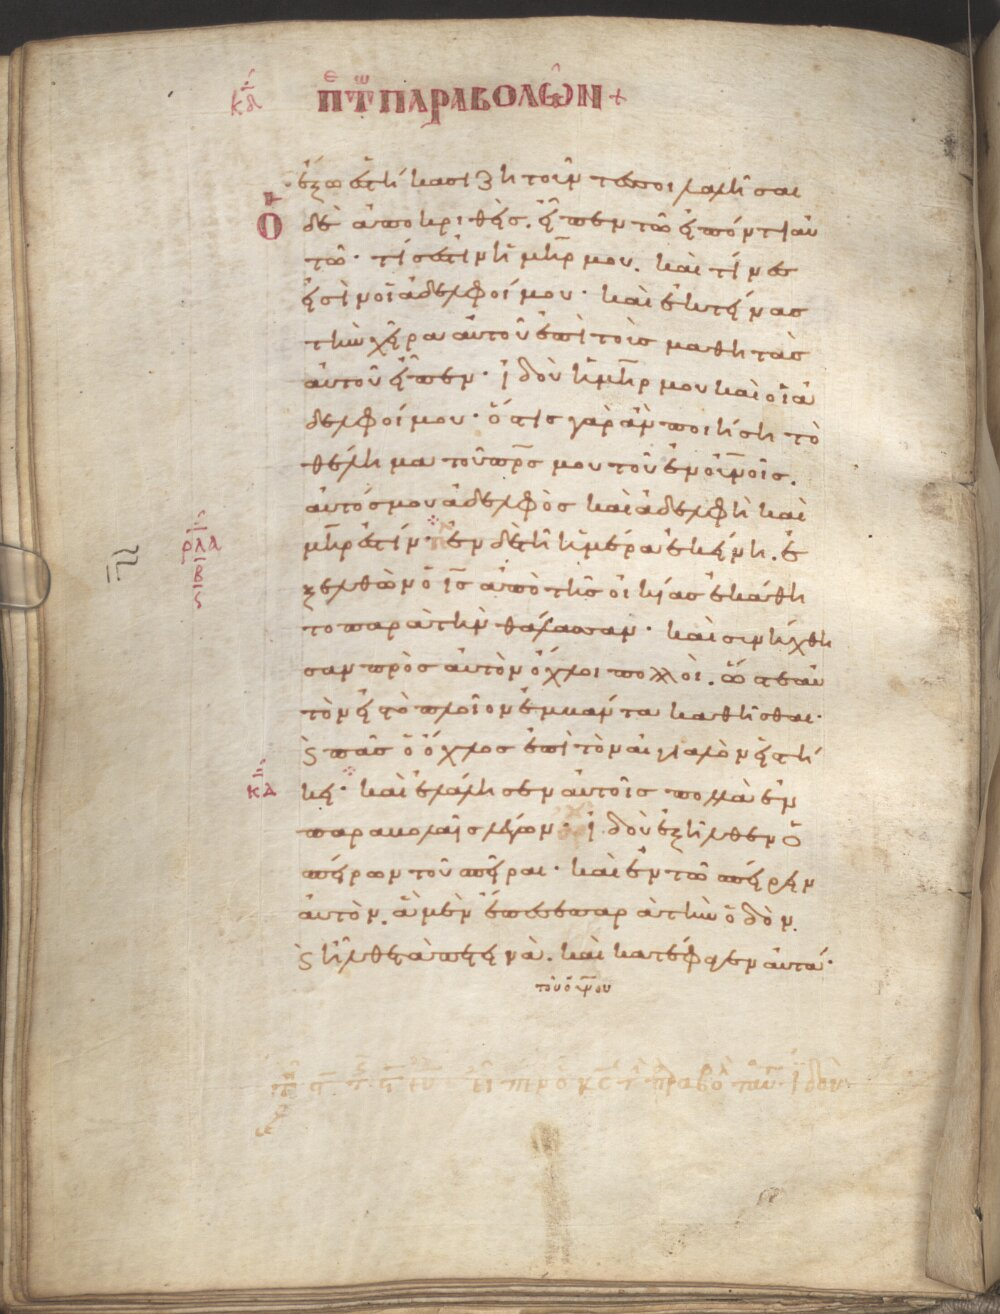 κδ ΠΕΡΙ ΤΩΝ ΠΑΡΑΒΟΛΩΝ +
ἔξω ἑστήκασι ζητοῦντές σοι λαλῆσαι
Ὁ δὲ ἀποκριθεὶς. εἶπεν τῶ εἰπόντι αὐ
τῶ· τίς ἐστὶν ἡ μῆρ μου. καὶ τίνες
εἰσὶν οἱ ἀδελφοί μου· καὶ ἐκτείνας
τὴν χεῖρα αὐτοῦ ἐπὶ τοὺς μαθητὰς
αὐτοῦ εἶπεν· ἰδοὺ ἡ μῆρ μου καὶ οἱ ἀ
δελφοί μου· ὅστις γὰρ ἂν ποιήση τὸ
θέλημα τοῦ πρς μου τοῦ ἐν οὐνοις.
αὐτός μου ἀδελφὸς καὶ ἀδελφὴ καὶ
μῆρ ἐστίν· ἐν δὲ τῆ ἡμέρα ἐκείνη. ἐ
ξελθὼν ὁ ις ἀπὸ τῆς οἰκίας ἐκάθη
το παρὰ τὴν θάλασσαν· καὶ συνήχθη
σαν πρὸς αὐτὸν ὄχλοι πολλοὶ. ὥστε αὐ
τὸν εἰς τὸ πλοῖον ἐμβάντα καθῆσθαι·
ϗ πᾶς ὁ ὄχλος ἐπὶ τὸν αἰγιαλὸν εἱστή
κει· καὶ ἐλάλησεν αὐτοῖς πολλὰ ἐν
παραβολαῖς λέγων· ἰδοὺ ἐξῆλθεν ὁ
σπείρων τοῦ σπεῖραι· καὶ ἐν τῶ σπείρειν
αὐτὸν. ἃ μὲν ἔπεσε παρὰ τὴν ὁδὸν.
ϗ ἦλθε τὰ πετεινὰ. καὶ κατέφαγεν αὐτά·
ρλα
β
ς
κδ